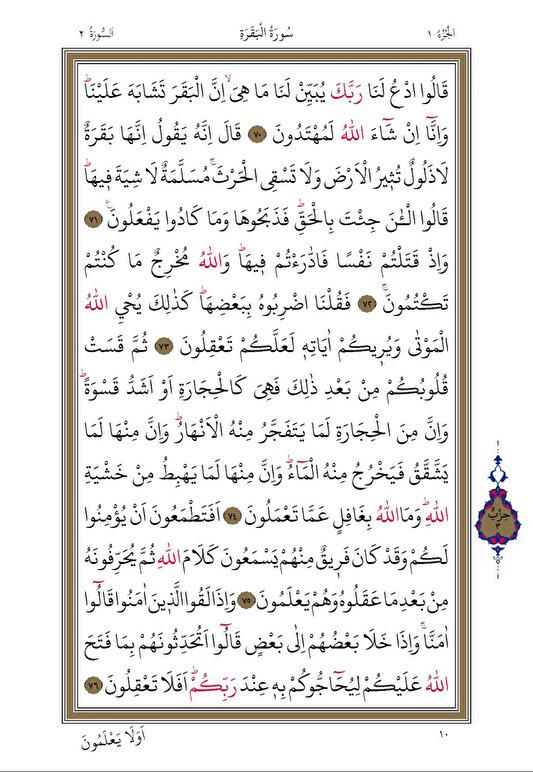 اَلْجُزْءُ ١
سُورَةُ الْبَقَرَةِ
اَلسُّورَةُ ٢
قَالُوا ادْعُ لَنَا رَبَّكَ يُبَيِّنْ لَنَا مَا هِىَۙ اِنَّ الْبَقَرَ تَشَابَهَ عَلَيْنَاۜ
وَاِنَّٓا اِنْ شَٓاءَ اللّٰهُ لَمُهْتَدُونَ ﴿٧٠﴾ قَالَ اِنَّهُ يَقُولُ اِنَّهَا بَقَرَةٌ
لَا ذَلُولٌ تُثِيرُ الْاَرْضَ وَلَا تَسْقِى الْحَرْثَۚ مُسَلَّمَةٌ لَا شِيَةَ فِيهَاۜ
قَالُوا الْـٰٔنَ جِئْتَ بِالْحَقِّۜ فَذَبَحُوهَا وَمَا كَادُوا يَفْعَلُونَ۟ ﴿٧١﴾
وَاِذْ قَتَلْتُمْ نَفْسًا فَادّٰرَءْتُمْ فِيهَاۜ وَاللّٰهُ مُخْرِجٌ مَا كُنْتُمْ
تَكْتُمُونَۚ ﴿٧٢﴾ فَقُلْنَا اضْرِبُوهُ بِبَعْضِهَاۜ كَذٰلِكَ يُحْيِ اللّٰهُ
الْمَوْتٰى وَيُرِيكُمْ اٰيَاتِهِ لَعَلَّكُمْ تَعْقِلُونَ ﴿٧٣﴾ ثُمَّ قَسَتْ
قُلُوبُكُمْ مِنْ بَعْدِ ذٰلِكَ فَهِىَ كَالْحِجَارَةِ اَوْ اَشَدُّ قَسْوَةًۜ
وَاِنَّ مِنَ الْحِجَارَةِ لَمَا يَتَفَجَّرُ مِنْهُ الْاَنْهَارُۜ وَاِنَّ مِنْهَا لَمَا
يَشَّقَّقُ فَيَخْرُجُ مِنْهُ الْمَٓاءُۜ وَاِنَّ مِنْهَا لَمَا يَهْبِطُ مِنْ خَشْيَةِ
اللّٰهِۜ وَمَا اللّٰهُ بِغَافِلٍ عَمَّا تَعْمَلُونَ ﴿٧٤﴾ اَفَتَطْمَعُونَ اَنْ يُؤْمِنُوا
لَكُمْ وَقَدْ كَانَ فَرِيقٌ مِنْهُمْ يَسْمَعُونَ كَلَامَ اللّٰهِ ثُمَّ يُحَرِّفُونَهُ
مِنْ بَعْدِ مَا عَقَلُوهُ وَهُمْ يَعْلَمُونَ ﴿٧٥﴾ وَاِذَا لَقُوا الَّذِينَ اٰمَنُوا قَالُٓوا
اٰمَنَّاۚ وَاِذَا خَلَا بَعْضُهُمْ اِلٰى بَعْضٍ قَالُٓوا اَتُحَدِّثُونَهُمْ بِمَا فَتَحَ
اللّٰهُ عَلَيْكُمْ لِيُحَٓاجُّوكُمْ بِهِ عِنْدَ رَبِّكُمْۜ اَفَلَا تَعْقِلُونَ ﴿٧٦﴾
حِزْبْ
٣
١٠
اَوَلَا يَعْلَمُونَ